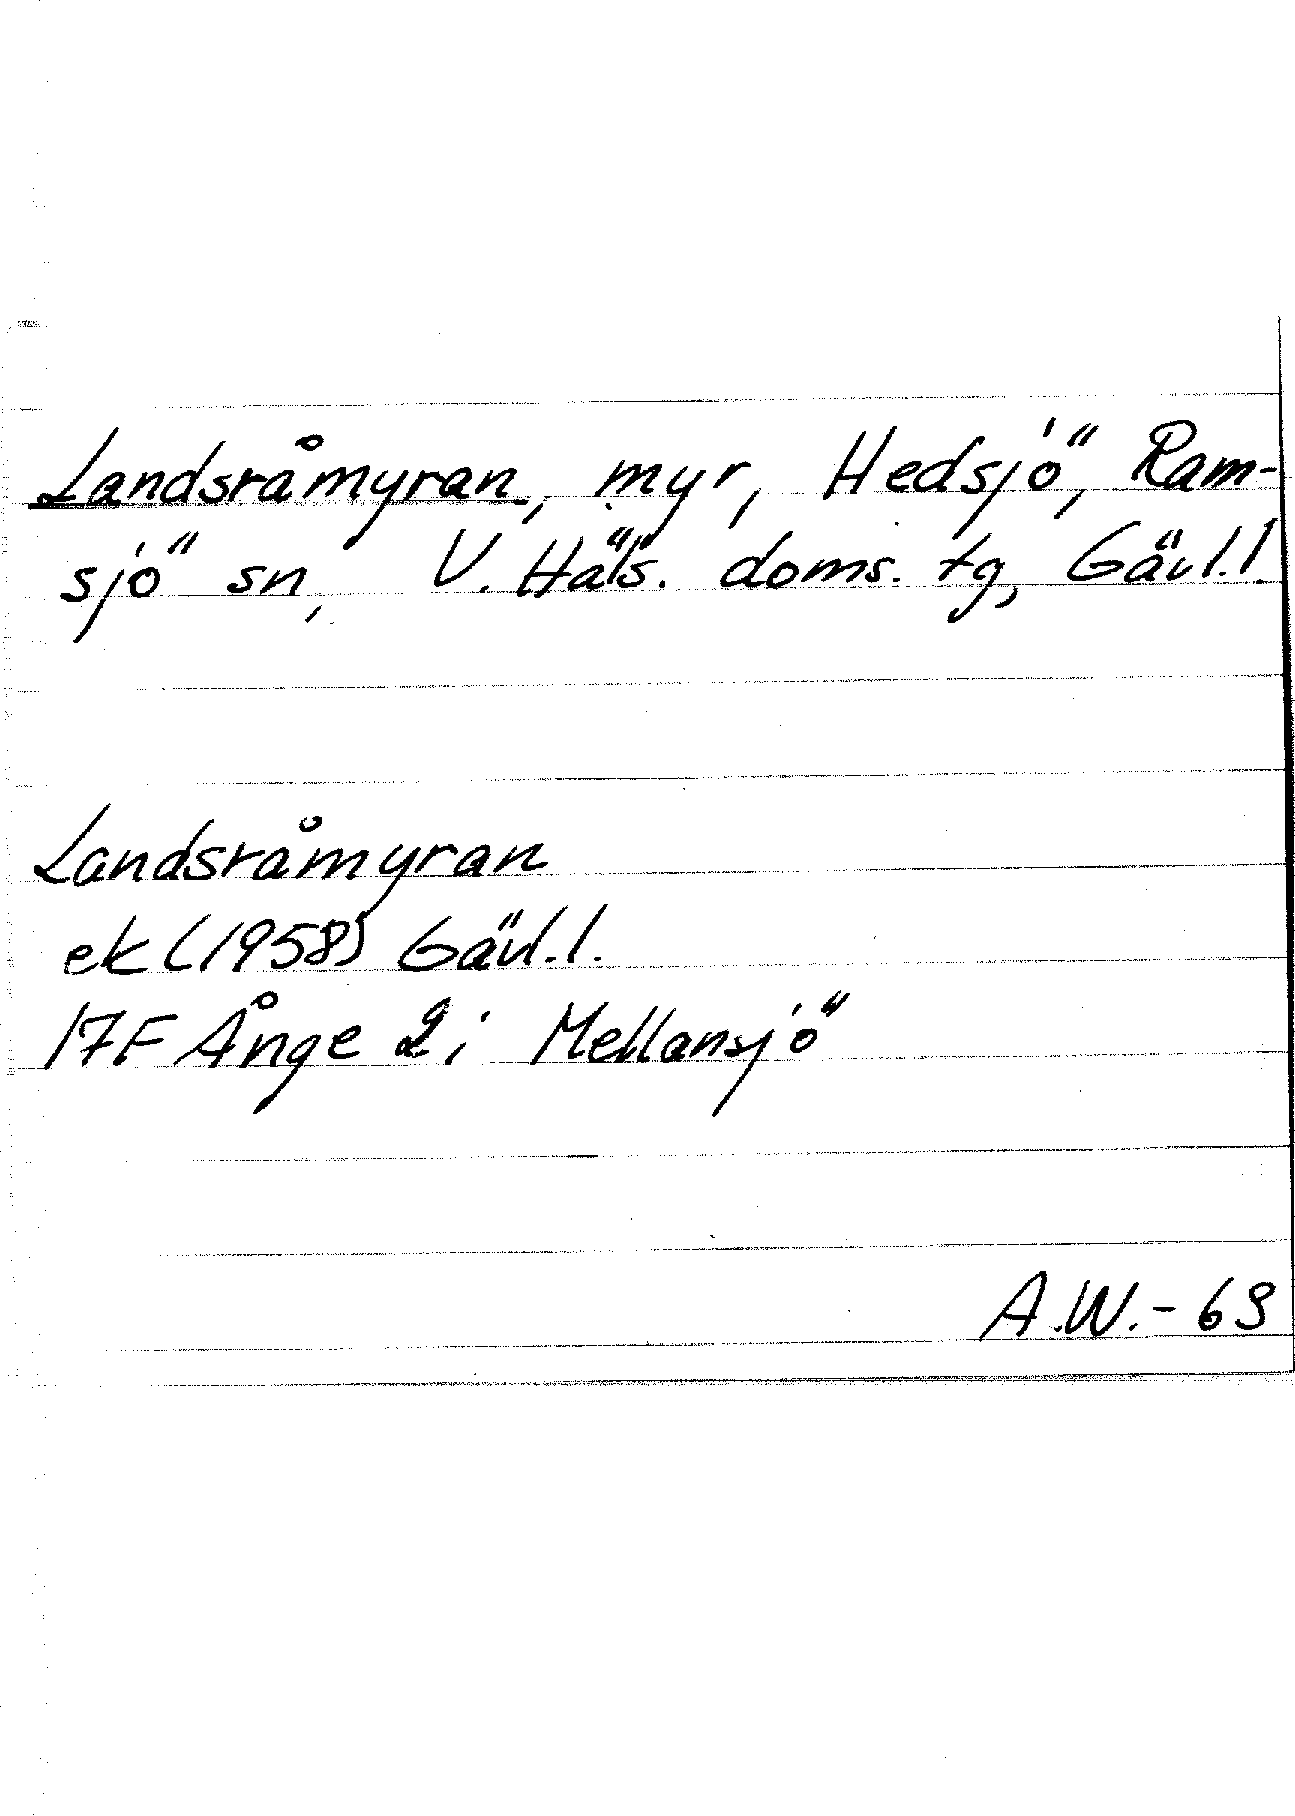 Landsråmyran, myr, Hedsjö, Ram-
sjö sn, V. Häls. doms. tg, Gävl.l.
Landsråmyran
ek (1958) Gävl.l.
17F Ånge 2i Mellansjö
A.W.-69